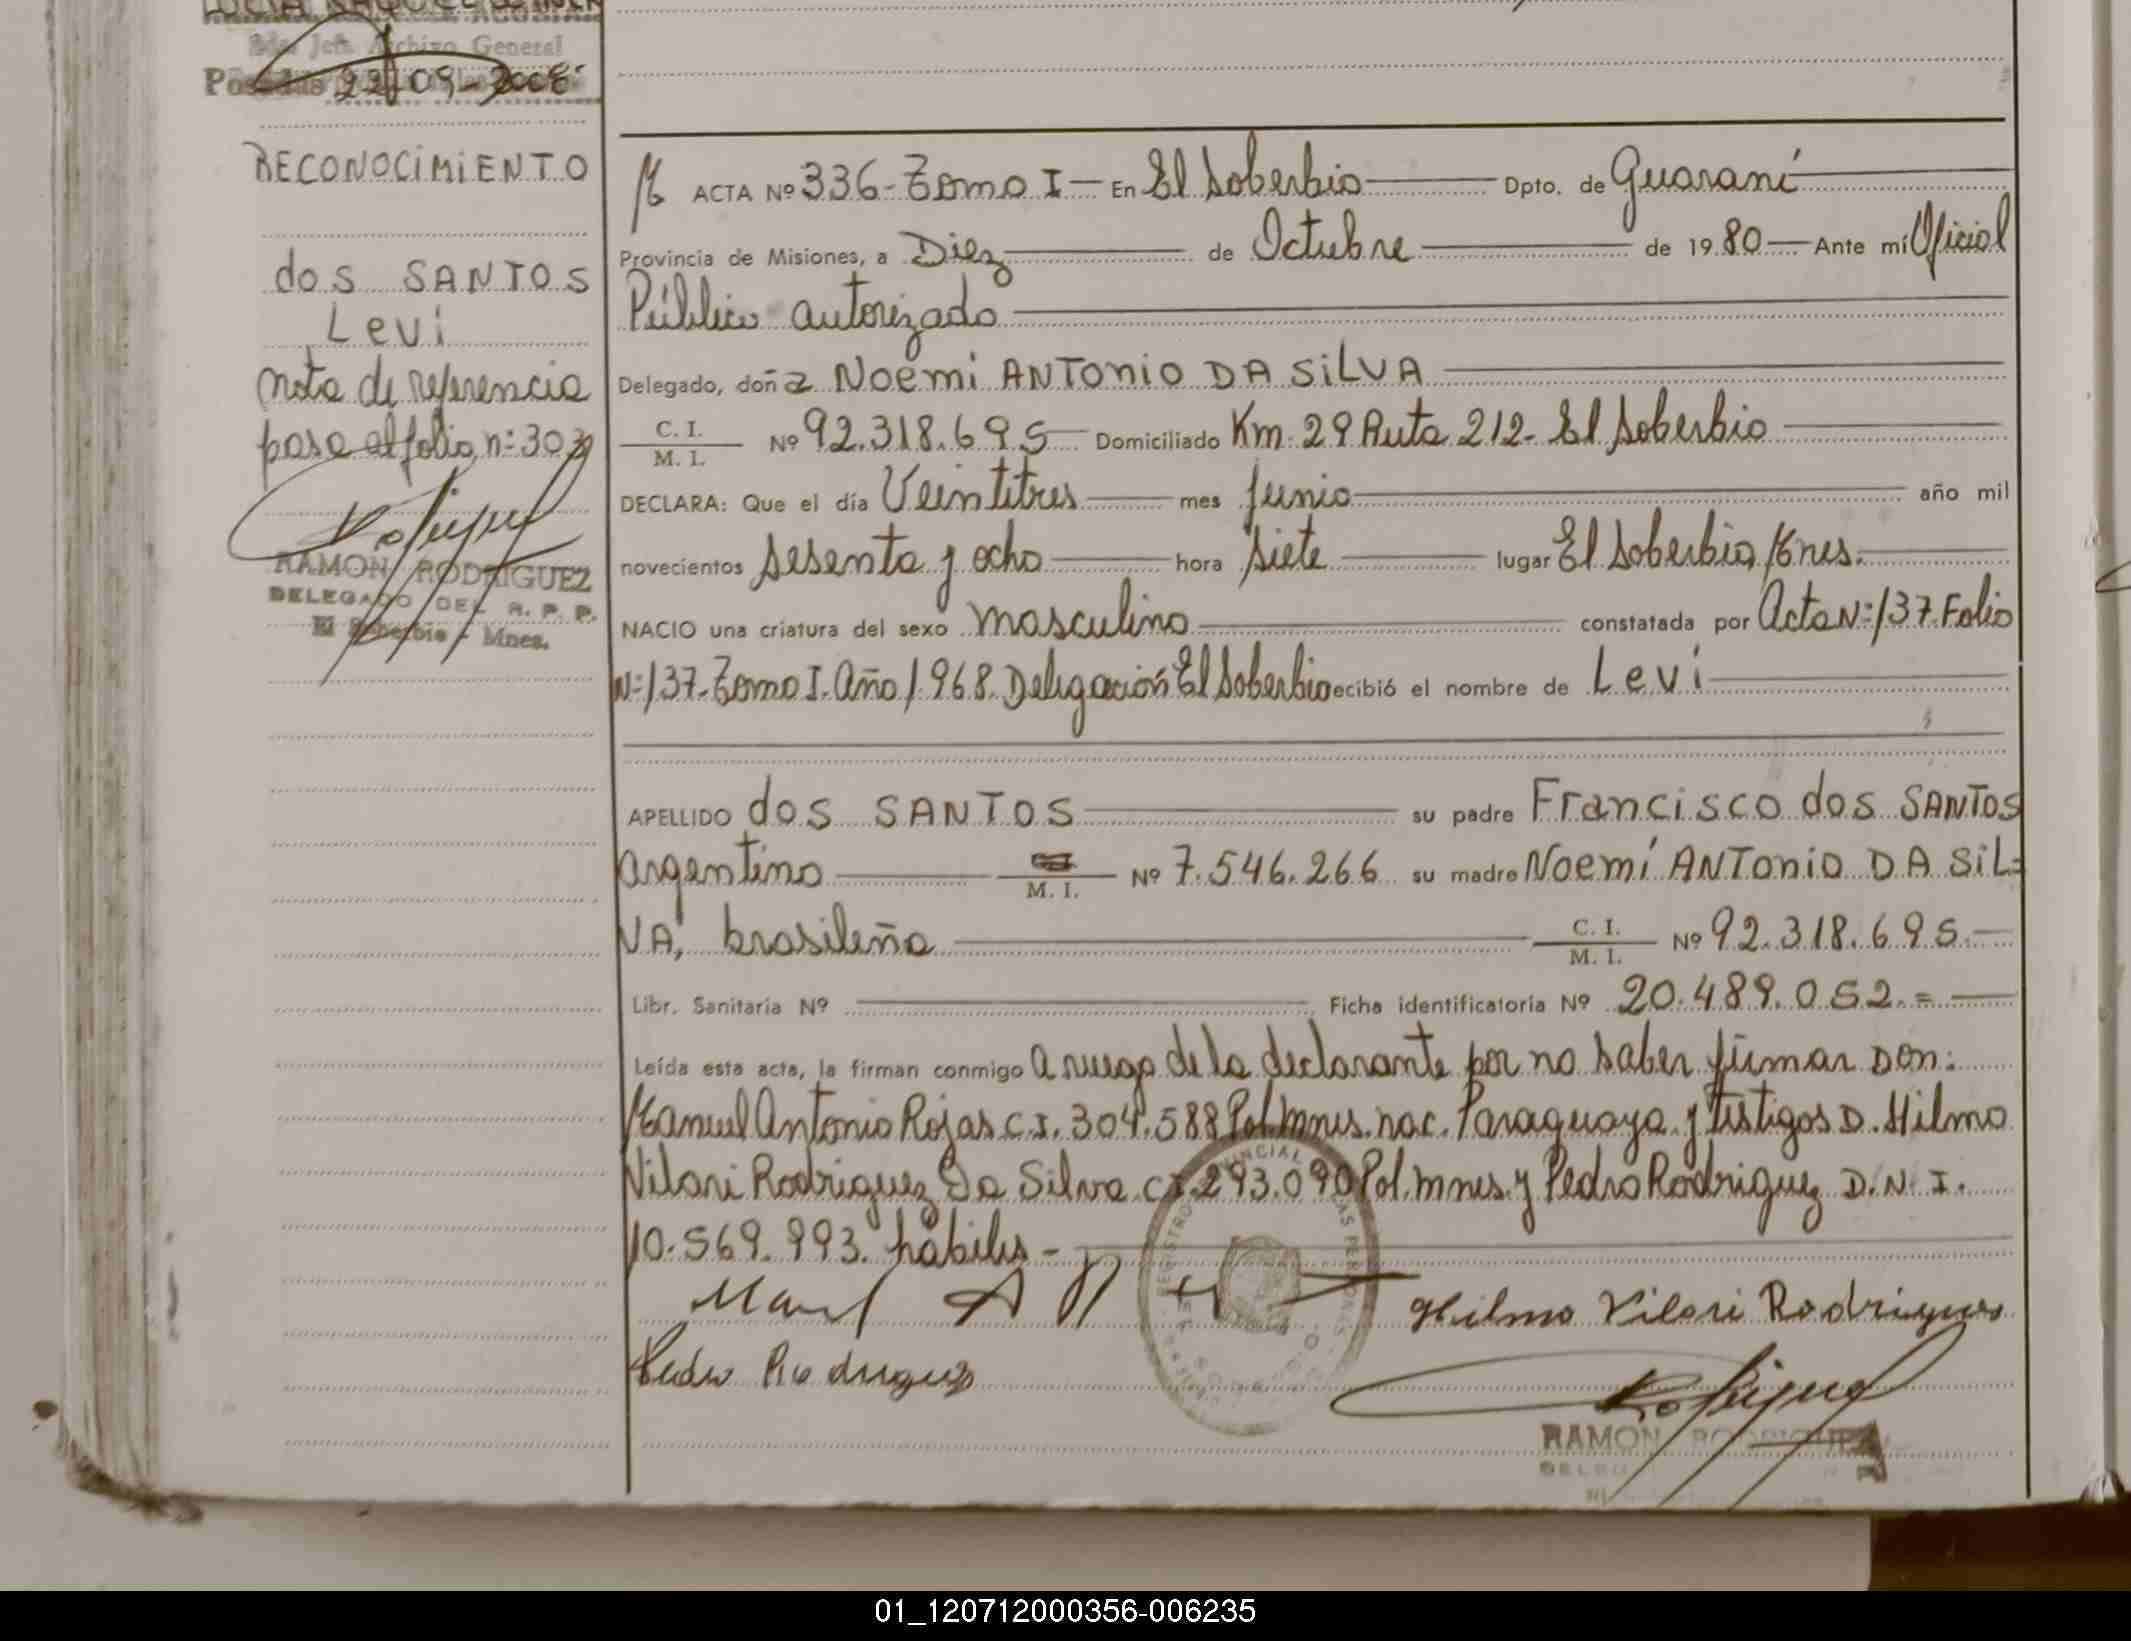 Sdo. Jefe Archivo General
Posadas 22-09-2008
RECONOCIMIENTO
dos SANTOS
Levi
nota de referencia
pase al folio n: 303
RAMON RODRIGUEZ
DELEGADO DEL R. P. P.
El Soberbio - Mnes.
ACTA Nº 336- Tomo I - En El Soberbio Dpto. de Guaraní
Provincia de Misiones, a Diez de Octubre de 1980 Ante mí Oficial
Público autorizado
Delegado, doña Noemi ANTONIO DA SILVA
C. I.
M. I. Nº 92.318.695 Domiciliado Km. 29 Ruta 212- El Soberbio
DECLARA: Que el día Veintitres mes Junio año mil
novecientos sesenta y ocho hora siete lugar El Soberbio, Mnes.
NACIO una criatura del sexo masculino constatada por Acta N: 137. Folio
N: 137. Tomo I. Año 1.968. Delegación El Soberbio recibió el nombre de Levi
APELLIDO dos SANTOS su padre Francisco dos SANTOS
argentino M. I. Nº 7.546.266 su madre Noemí ANTONIO DA SIL=
VA, brasileña C. I.
M. I. Nº 92.318.695.
Libr. Sanitaria Nº Ficha identificatoria Nº 20.489.052.=
Leída esta acta, la firman conmigo a ruego de la declarante por no saber firmar Don:
Manuel Antonio Rojas C.I. 304.588 Pol. Mnes. nac. Paraguaya y testigos D. Hilmo
Vilari Rodriguez Da Silva C.I. 293.090 Pol. Mnes. y Pedro Rodriguez D.N.I.
10.569.993. hábiles -
Hilmo Vilari Rodrigues
Pedro Rodriguez
RAMON RODRIGUEZ
01_120712000356-006235